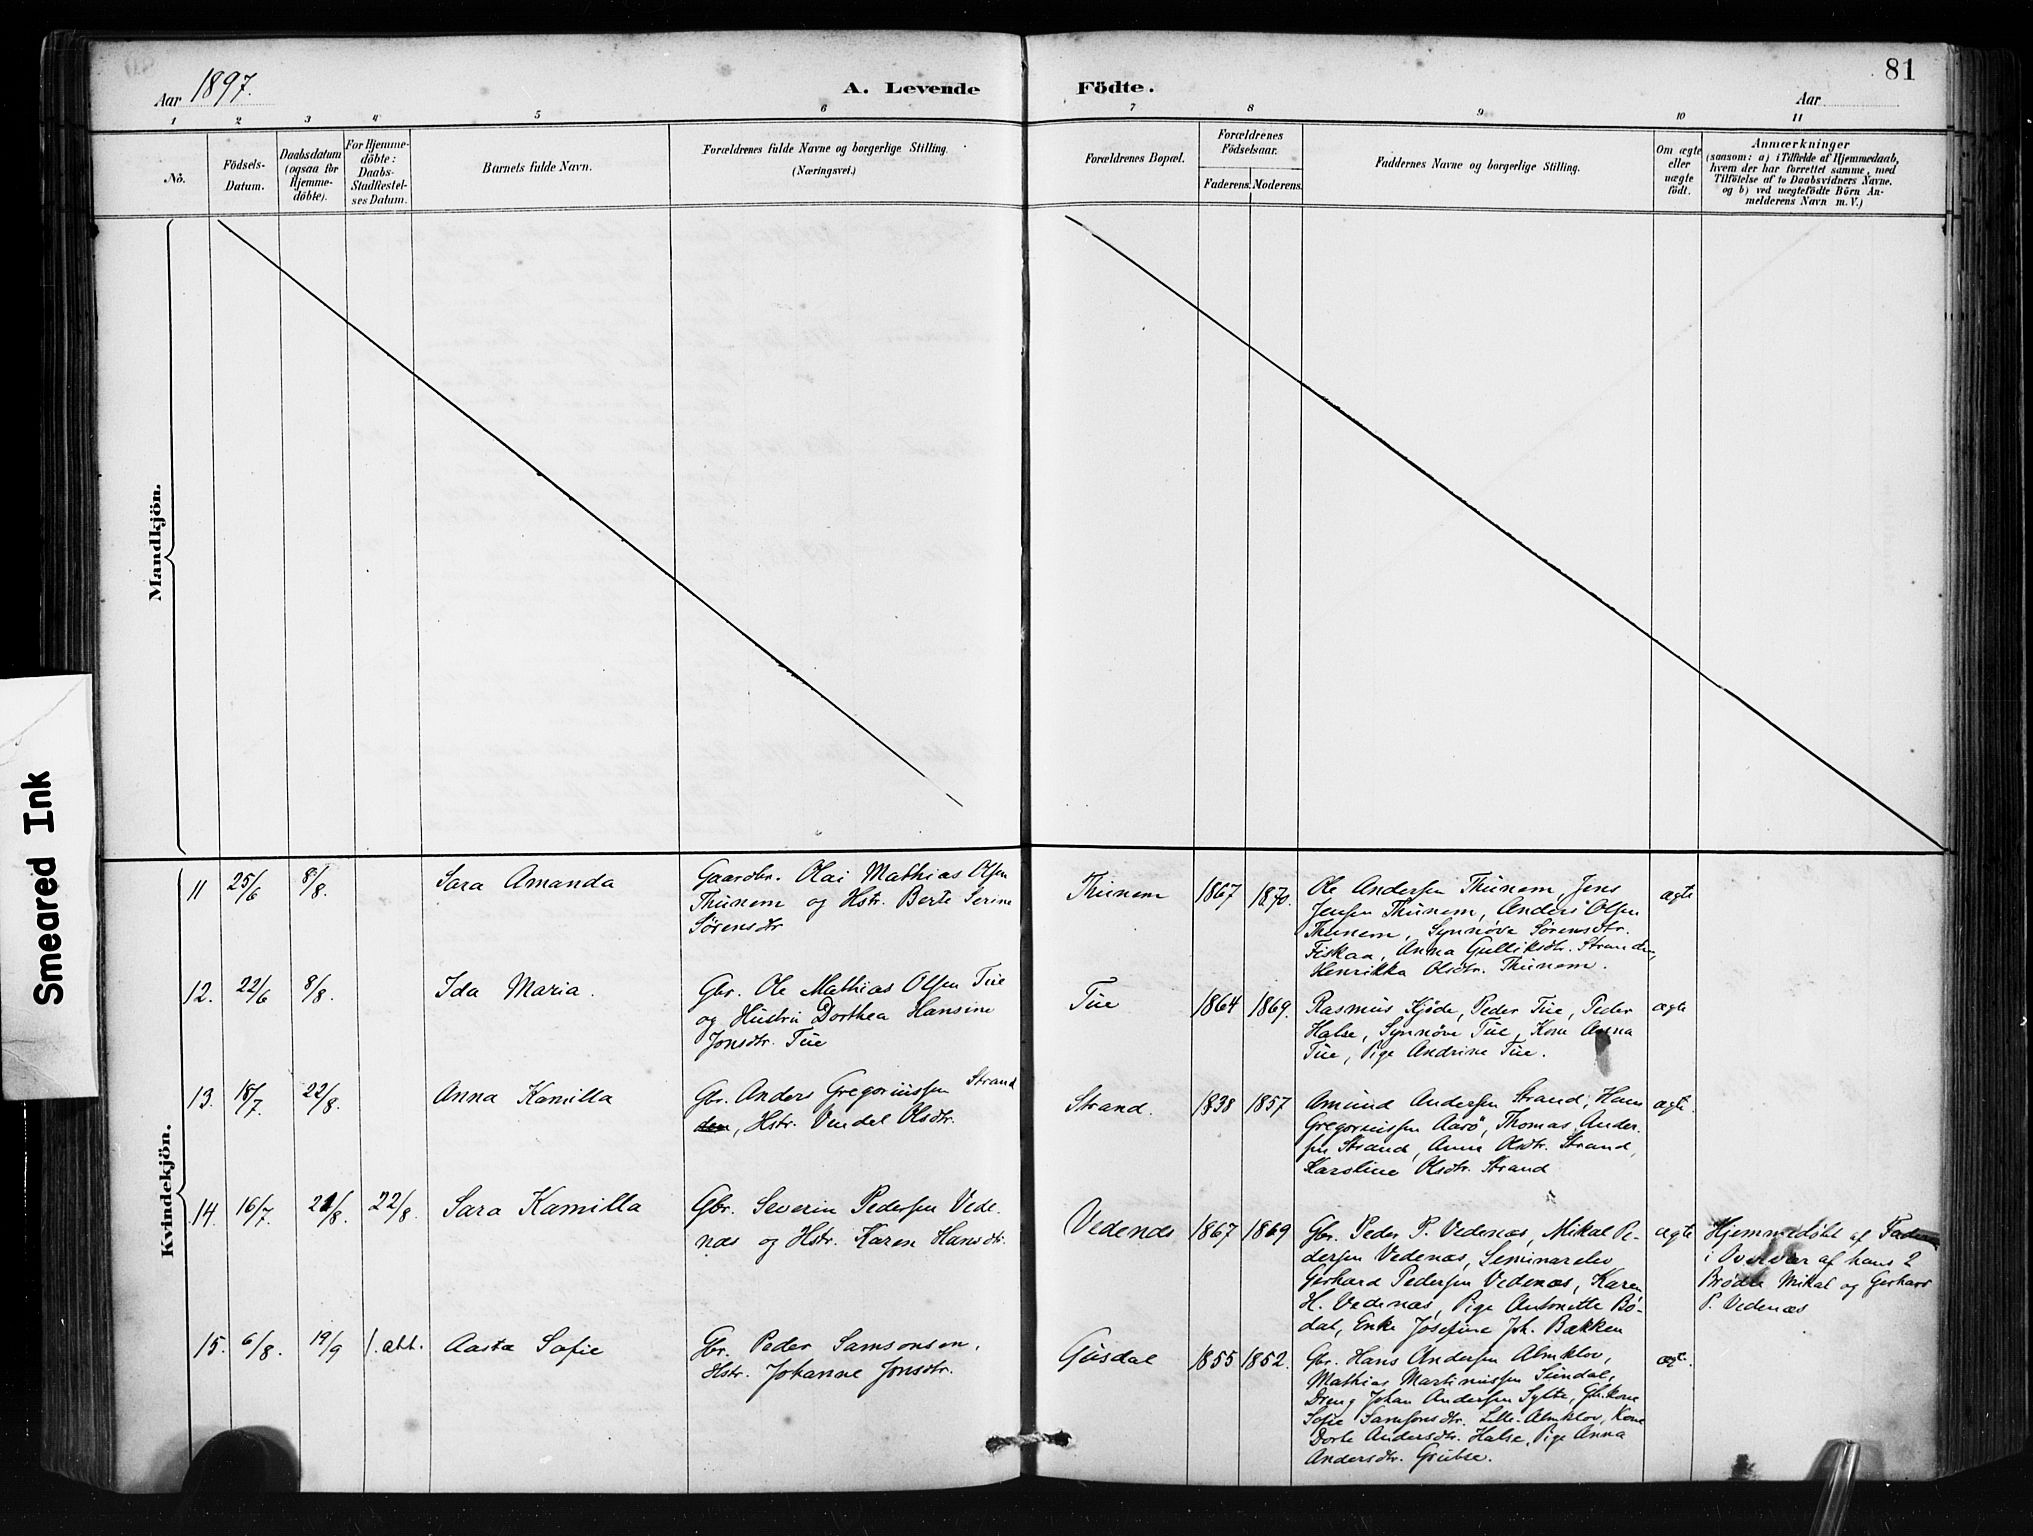 81
Aar 1897.
A. Levende Födte.
Aar
1 2 3 4 5 6 7 8 9 10 11
Nô.
Födsels-
Datum.
Daabsdatum
(ogsaa for
Hjemme-
döbte).
For Hjemme-
döbte:
Daabs-
Stadfæstel-
ses Datum.
Barnets fulde Navn.
Forældrenes fulde Navne og borgerlige Stilling.
(Næringsvei.)
Forældrenes Bopæl.
Forældrenes
Födselsaar.
Faderens. Moderens.
Faddernes Navne og borgerlige Stilling.
Om ægte
eller
uægte
födt.
Anmærkninger
(saasom: a) i Tilfælde af Hjemmedaab,
hvem der har forrettet samme, med
Tilföielse af to Daabsvidners Navne,
og b) ved uægtefödte Börn An-
melderens Navn m. V.)
Mandkjön.
Smeared Ink
Kvindekjön.
11 25/6 8/8. Sara Amanda
Gaardbr. Olai Mathias Olsen
Thunem og Hstr. Berte Serine
Sörensdtr
Thunem 1867 1870.
Ole Andersen Thunem, Jens
Jensen Thunem, Anders Olsen
Thunem, Synnöve Sörensdtr.
Fiskaa, Anna Gulliksdtr. Stranden,
Henrikka Olsdtr. Thunem.
ægte
12. 22/6 8/8. Ida Maria.
Gbr. Ole Mathias Olsen Tue
og Hustru Dorthea Hansine
Jonsdtr. Tue
Tue 1864 1869.
Rasmus Kjöde, Peder Tue, Peder
Halse, Synnöve Tue, Kone Anna
Tue, Pige Andrine Tue.
ægte
13. 18/7. 22/8. Anna Kamilla
Gbr. Anders Gregoriussen Strand
den, Hstr. Vendel Olsdtr.
Strand. 1838 1857
Amund Andersen Strand, Hans
Gregoriussen Aarö, Thomas Ander-
sen Strand, Anne Olsdtr. Strand,
Karoline Olsdtr. Strand
ægte.
14. 16/7. 21/8. 22/8. Sara Kamilla
Gbr. Severin Pedersen Vede-
næs og Hstr. Karen Hansdtr.
Vedenæs 1867 1869
Gbr. Peder P. Vedenæs, Mikal Pe-
dersen Vedenæs, Seminarelev
Gerhard Pedersen Vedenæs, Karen
H. Vedenæs, Pige Antonette Bö-
dal, Enke Josefine Joh. Bakken
ægte
Hjemmedöbt af Faderen
i Overvær af hans 2
Brödre Mikal og Gerhard
P. Vedenæs
15. 6/8. 19/9 f. att. Aasta Sofie
Gbr. Peder Samsonsen,
Hstr. Johanne Jonsdtr.
Gusdal 1855 1852.
Gbr. Hans Andersen Almklov,
Mathias Martinussen Sundal,
Dreng Johan Andersen Sylte, Gbkone
Sofie Samsonsdtr. Lille-Almklov, Kone
Dorte Andersdtr. Halse, Pige Anna
Andersdtr. Grubse.
ægt.